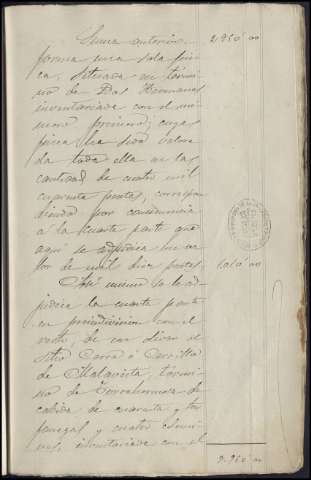 Suma anterior 2,950'00
forma una sola fin-
ca, situada en térmi-
no de Dos Hermanas
inventariada con el nú-
mero primero; cuya
finca ha sido valora-
da toda ella en la
cantidad de cuatro mil
cuarenta pesetas, correspon
diendo por consecuencia
á la cuarta parte que
aquí se adjudica un va-
lor de mil diez pesetas 1,010'00
Asi mismo se le ad-
judica la cuarta parte
en proindivision con el
resto, de un olivar al
sitio Cerro ó Cerrillo
de Malavista, térmi-
no de
cabida de cuarenta y tres
fanegas y cuatro celemi-
nes, inventariada con el
3.960'00